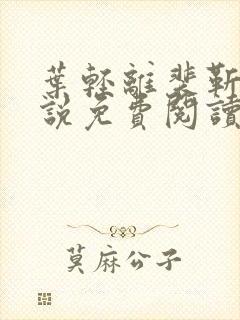 葉輕離裴靳
說免費閱讀
莫麻公子